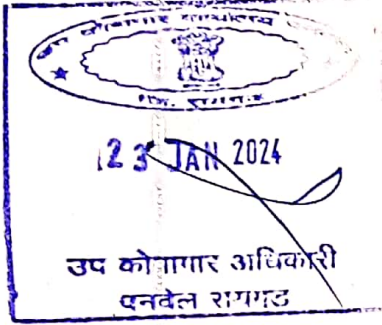 उप कोषागार कार्यालय
जि. रायगड
23 JAN 2024
उप कोषागार अधिकारी
पनवेल रायगड